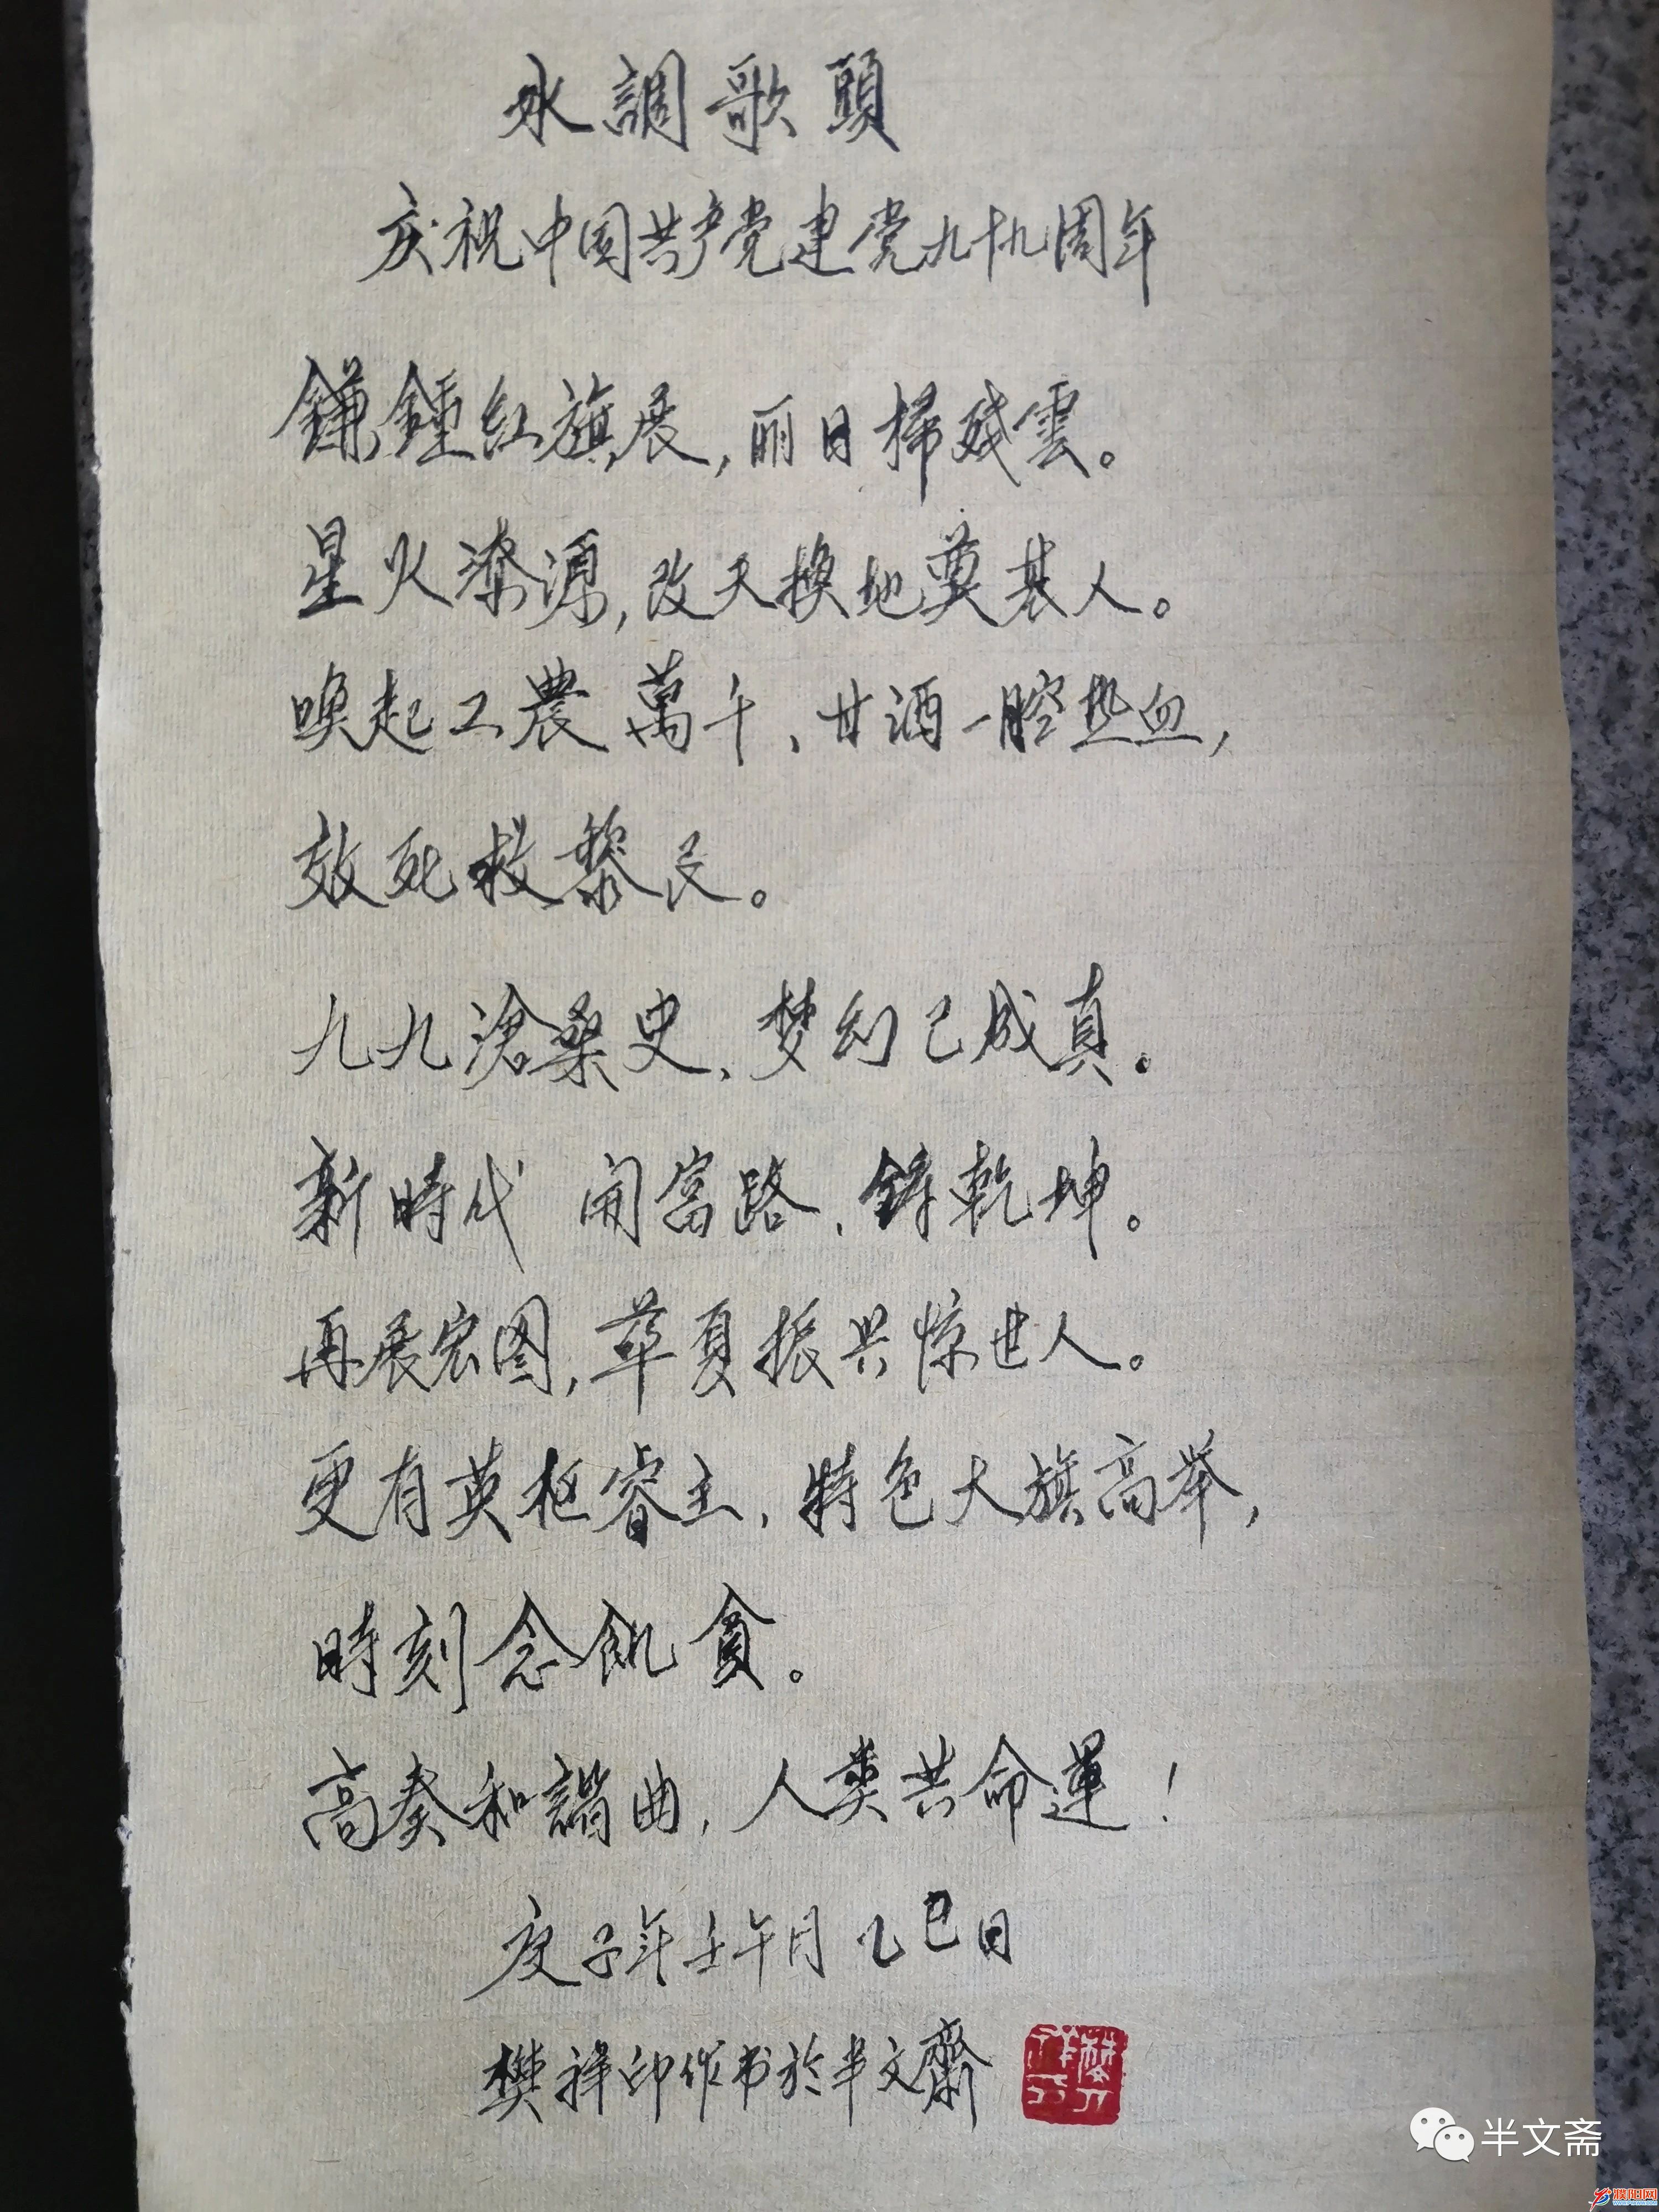 水調歌頭
庆祝中国共产党建党九十九周年
鐮錘红旗展，丽日掃残雲。
星火潦源，改天换地奠基人。
唤起工農萬千、甘洒一腔热血，
效死救黎民。
九九滄桑史、梦幻已成真。
新時代 開富路、鋳乾坤。
再展宏图，華夏振兴惊世人。
更有英枢睿主，特色大旗高举，
時刻念飢貧。
高奏和諧曲，人类共命運！
庚子年壬午月乙巳日
樊祥印作书於半文齋
半文斋
濮阳网